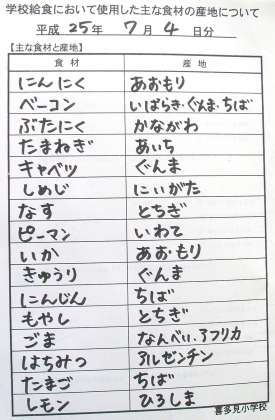 学校給食において使用した主な食材の産地について
平成 25年 7月 4日分
【主な食材と産地】
食材 産地
にんにく あおもり
ベーコン いばらき・ぐんま・ちば
ぶたにく かながわ
たまねぎ あいち
キャベツ ぐんま
しめじ にいがた
なす とちぎ
ピーマン いわて
いか あおもり
きゅうり ぐんま
にんじん ちば
もやし とちぎ
ごま なんべい・アフリカ
はちみつ アルゼンチン
たまご ちば
レモン ひろしま
喜多見小学校